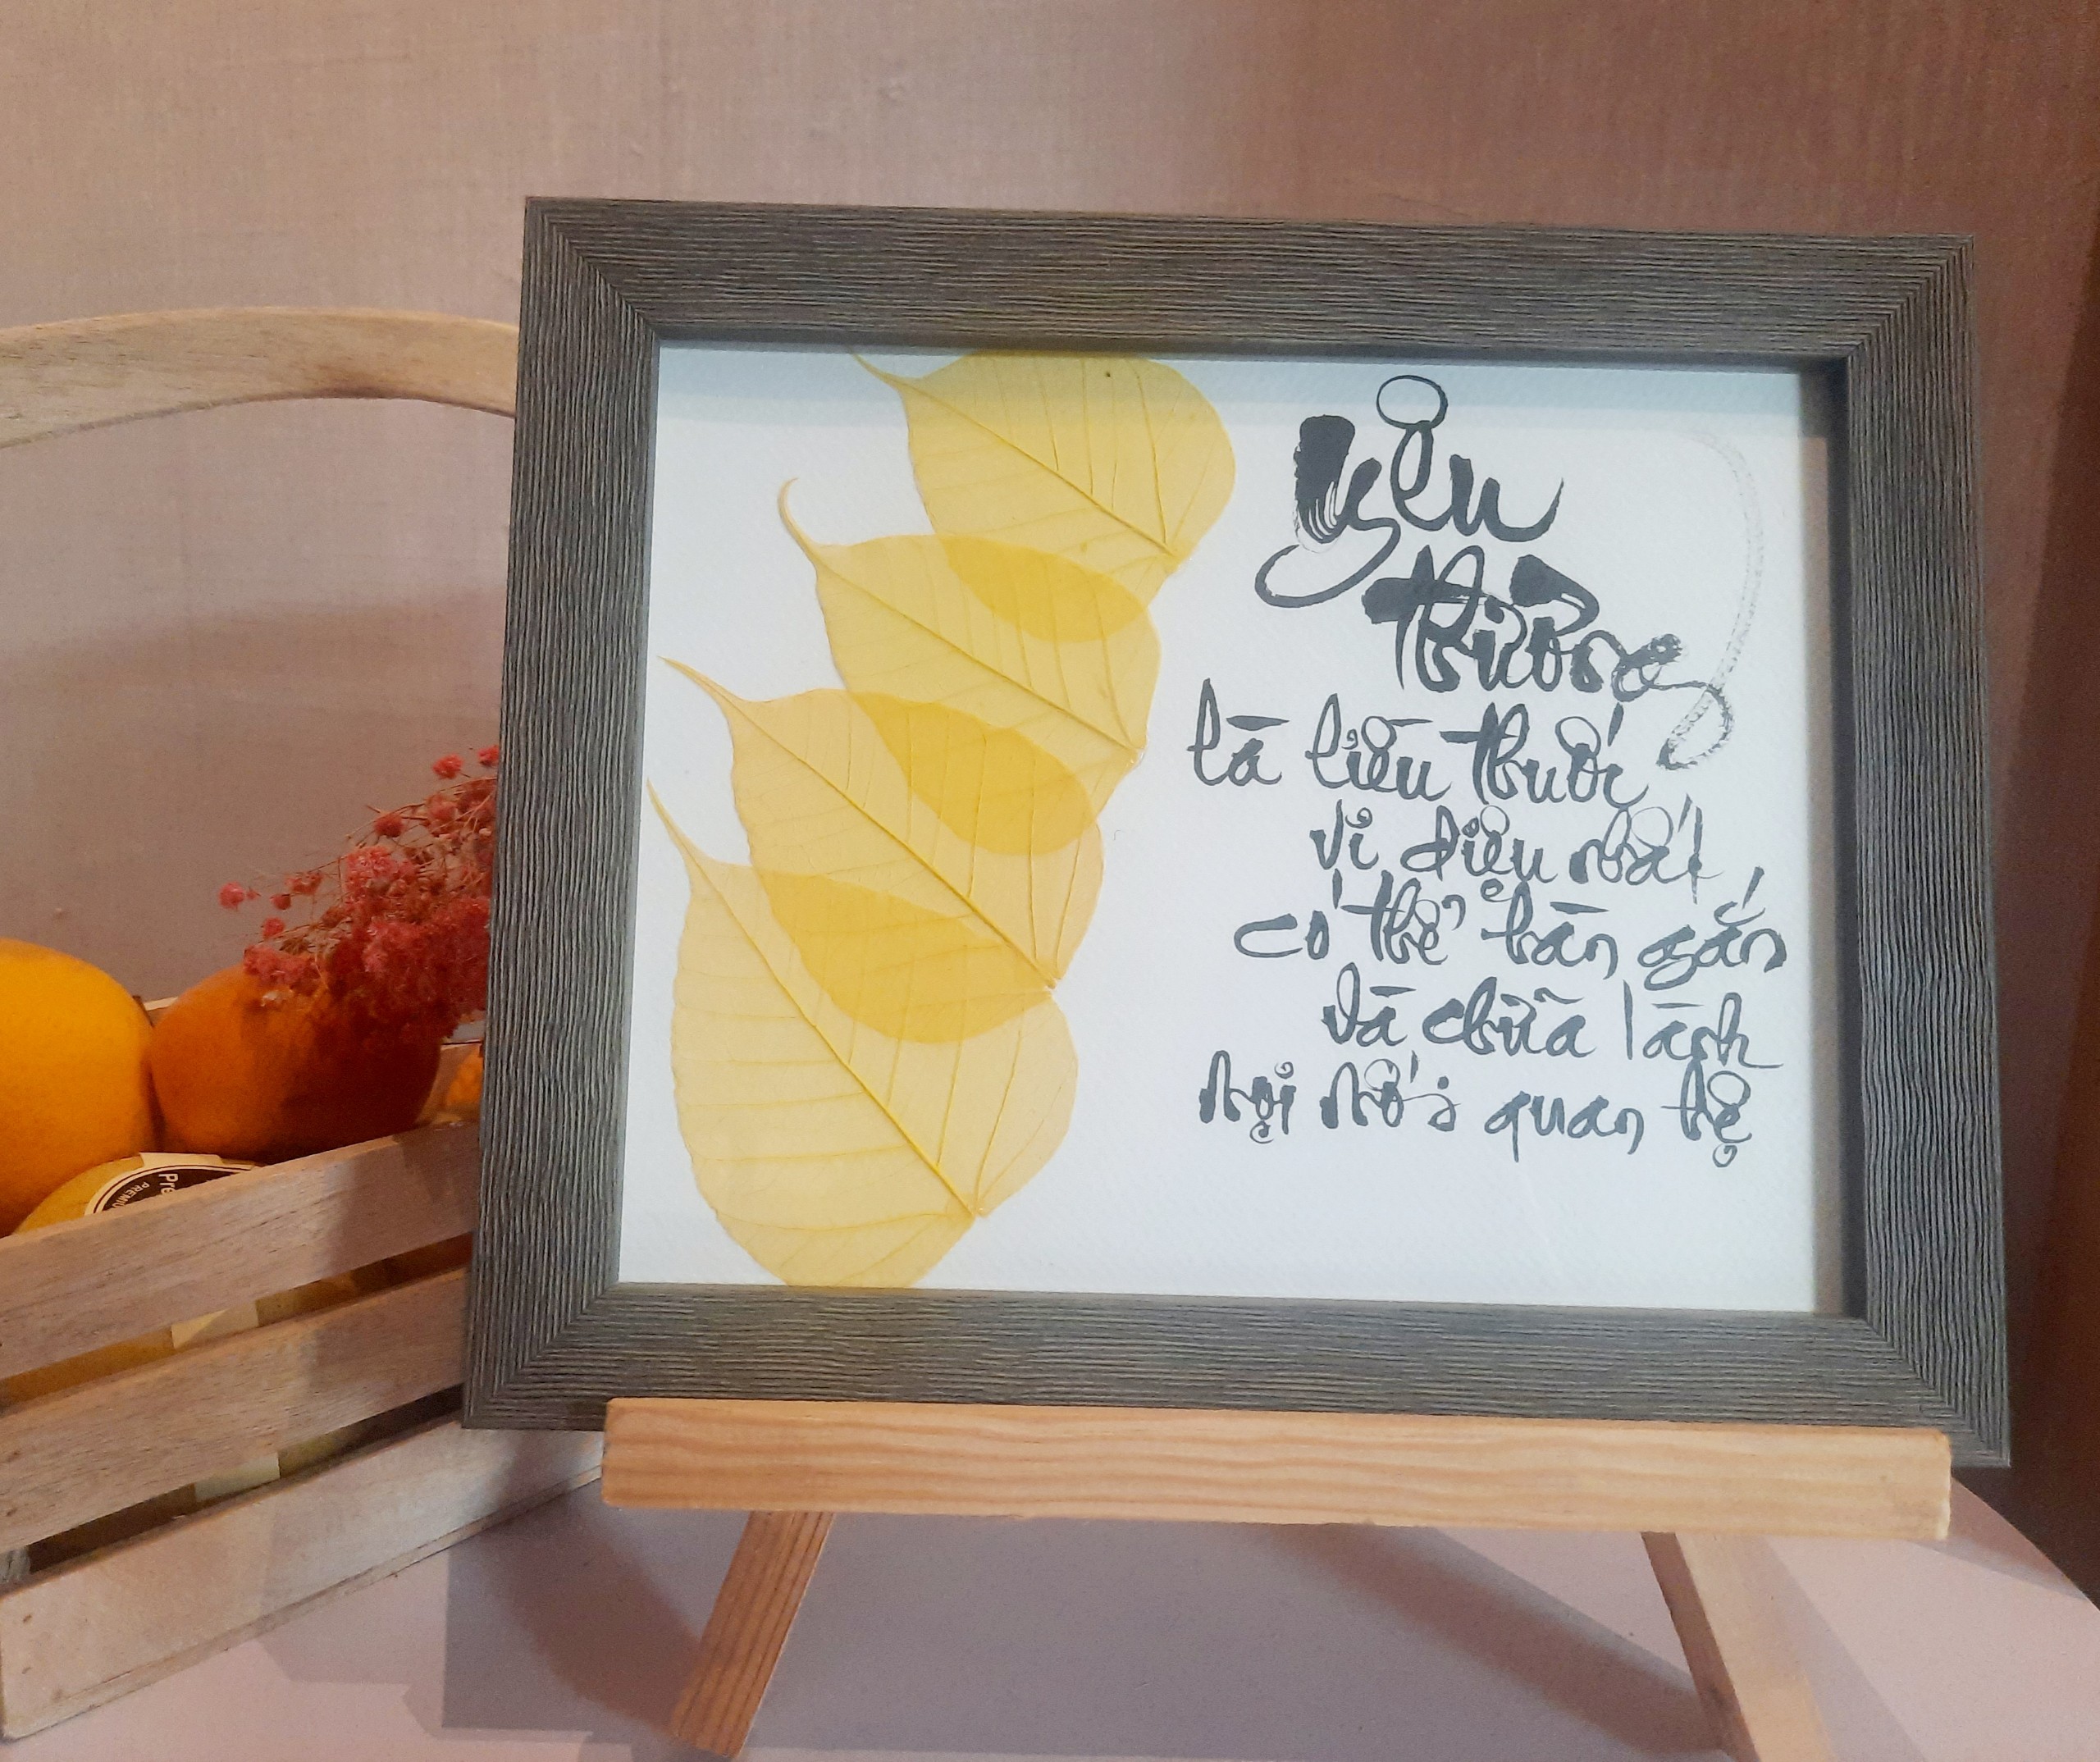 yêu
thương
là liều thuốc
vi diệu nhất
có thể hàn gắn
và chữa lành
mọi mối quan hệ
Pre
PREMIU